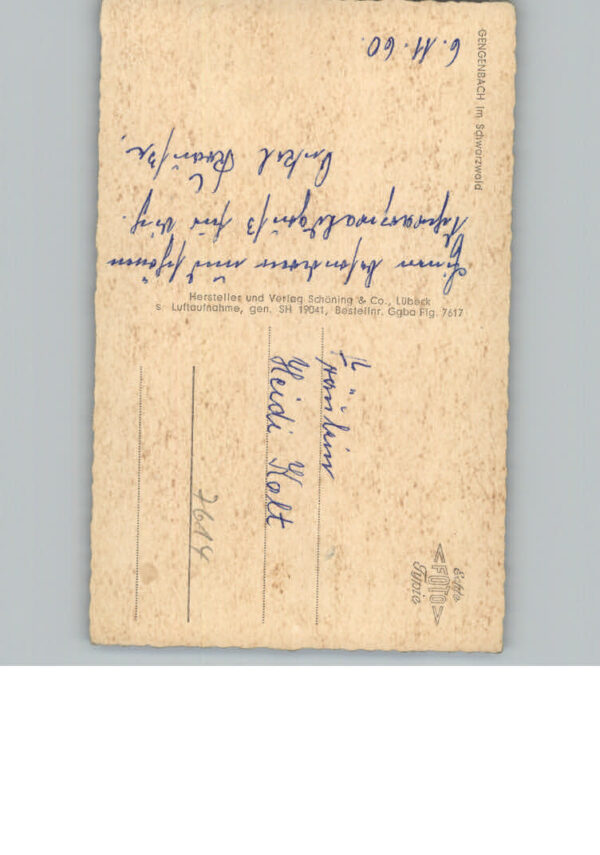 GENGENBACH im Schwarzwald
6. 11. 60.
Einen besonderen und schönen
Schwarzwaldgruß für Dich.
Onkel
Hersteller und Verlag Schöning & Co., Lübeck
s Luftaufnahme, gen. SH 19041, Bestellnr. Ggba Flg. 7617
Fräulein
Heidi Kalt
7614
Echte
FOTO
Typie